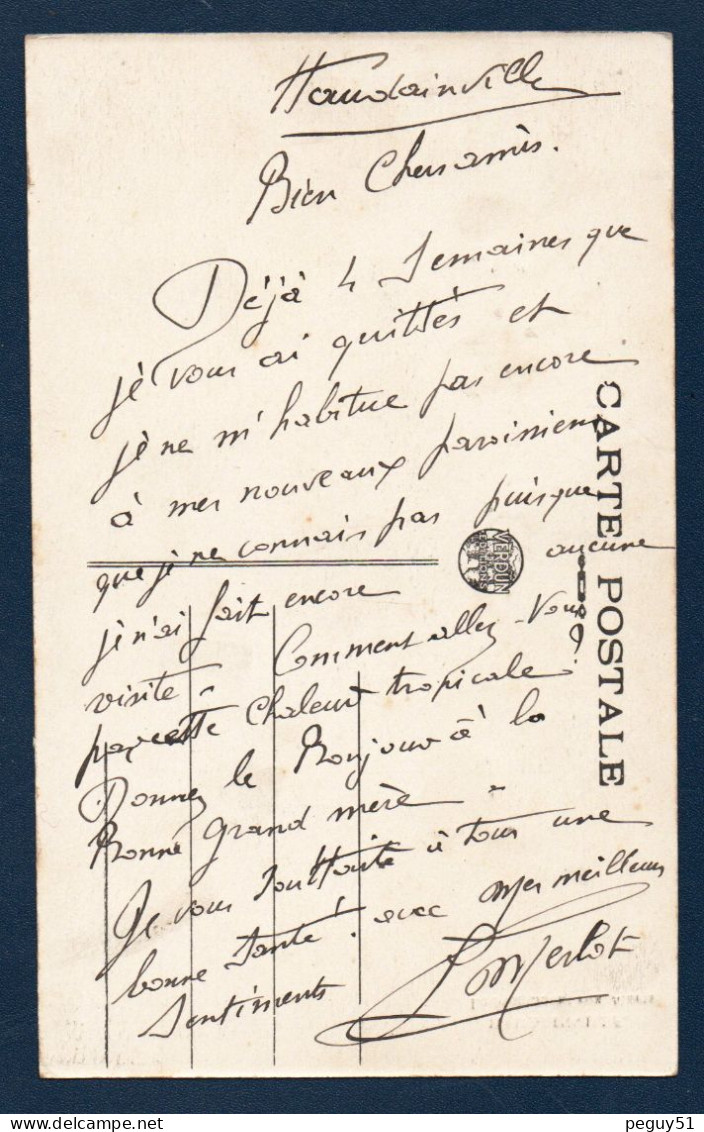 Haudainville
Bien Chers amis.
Déjà 4 Semaines que
je vous ai quittés et
je ne m'habitue pas encore
à mes nouveaux paroissiens
que je ne connais pas puisque
je n'ai fait encore aucune
visite. Comment allez-vous
par cette Chaleur tropicale.
Donnez le Bonjour à la
Bonne Grand mère.
Je vous souhaite à tous une
bonne Santé! avec mes meilleurs
Sentiments
Merlot
CARTE POSTALE
VERDUN
peguy51